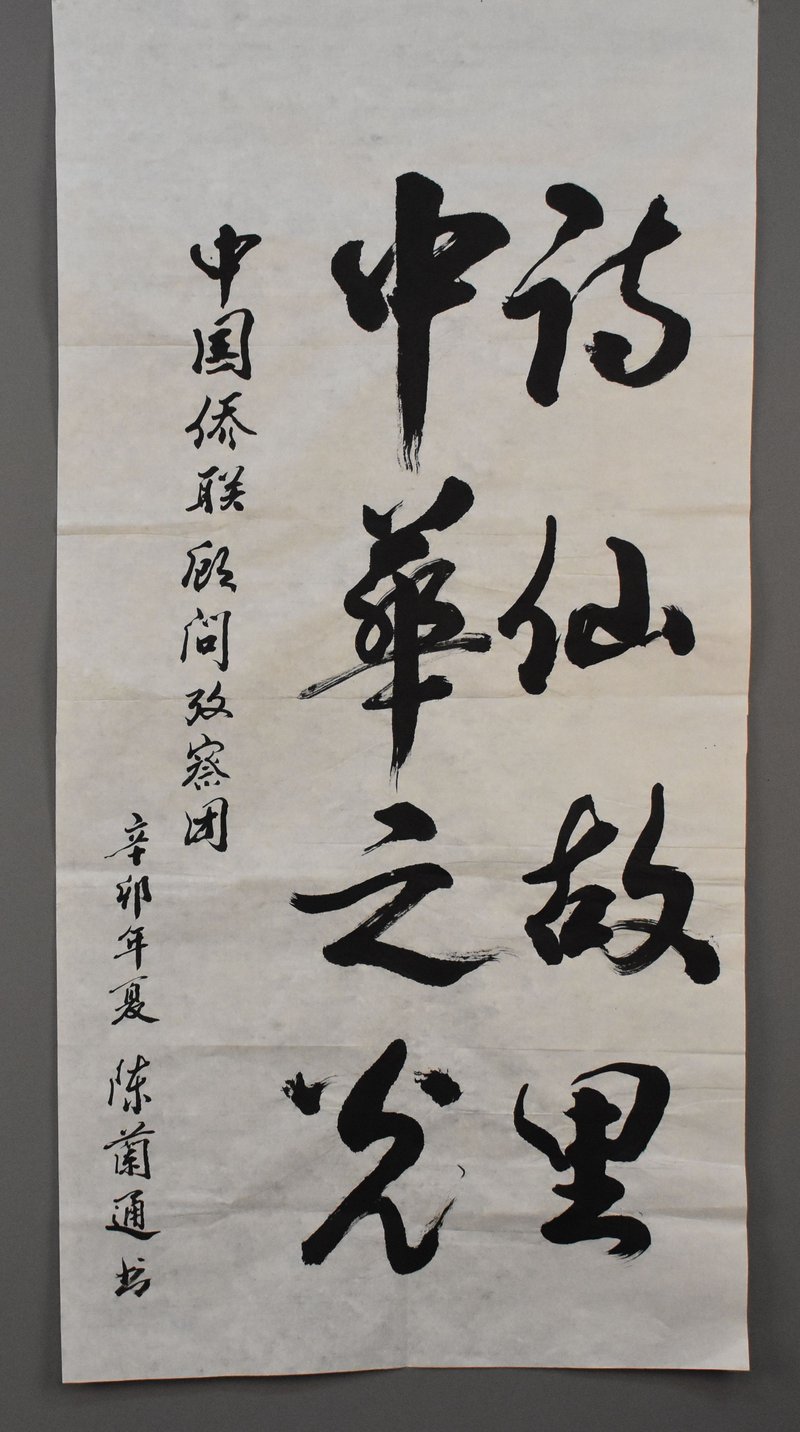 诗仙故里
中华之光
中国侨联顾问考察团
辛卯年夏 陈兰通书